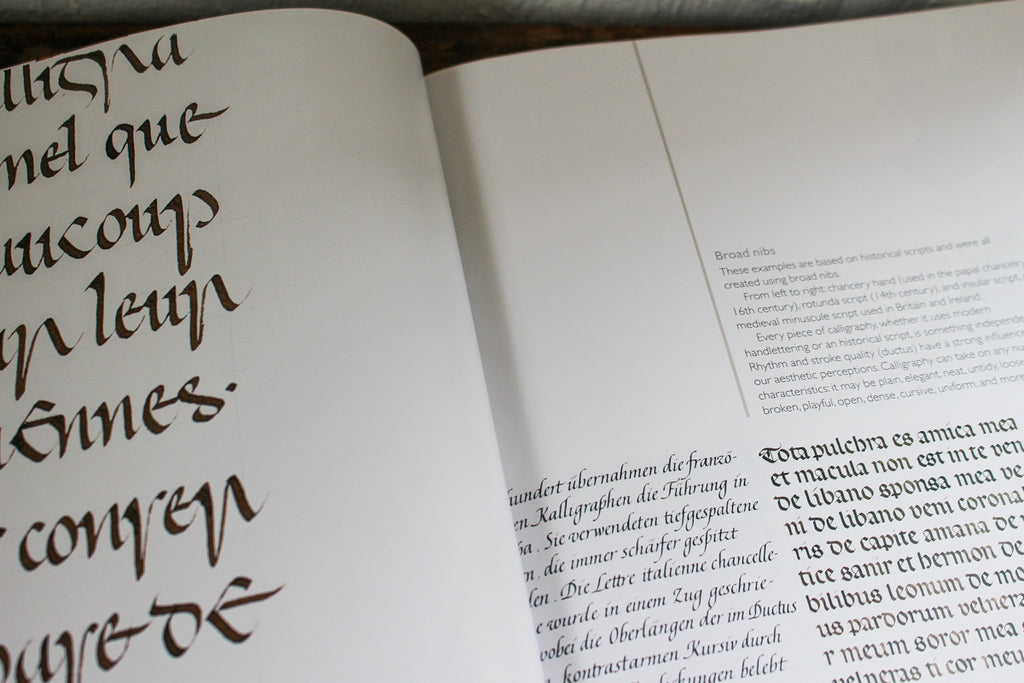 nel que
leur
ennes.
conser
de
Broad nibs
These examples are based on historical scripts and were all
created using broad nibs.
From left to right: chancery hand (used in the papal chancelry
16th century), rotunda script (14th century), and insular script,
medieval minuscule script used in Britain and Ireland.
Every piece of calligraphy, whether it uses modern
handlettering or an historical script, is something independe
Rhythm and stroke quality (ductus) have a strong influence
our aesthetic perceptions. Calligraphy can take on any nu
characteristics: it may be plain, elegant, neat, untidy, loose
broken, playful, open, dense, cursive, uniform, and more
hundert übernahmen die franzö-
en Kalligraphen die Führung in
Sie verwendeten tiefgespaltene
n, die immer schärfer gespitzt
Die Lettre italienne chancelle-
e wurde in einem Zug geschrie-
wobei die Oberlängen der im Ductus
kontrastarmen Kursiv durch
belebt
Tota pulchra es amica mea
et macula non est in te ven
de libano sponsa mea ve
ni de libano veni corona
ris de capite amana de
tice sanir et hermon de
bilibus leonum de mo
us pardorum velnera
r meum soror mea
velneras ti cor meu